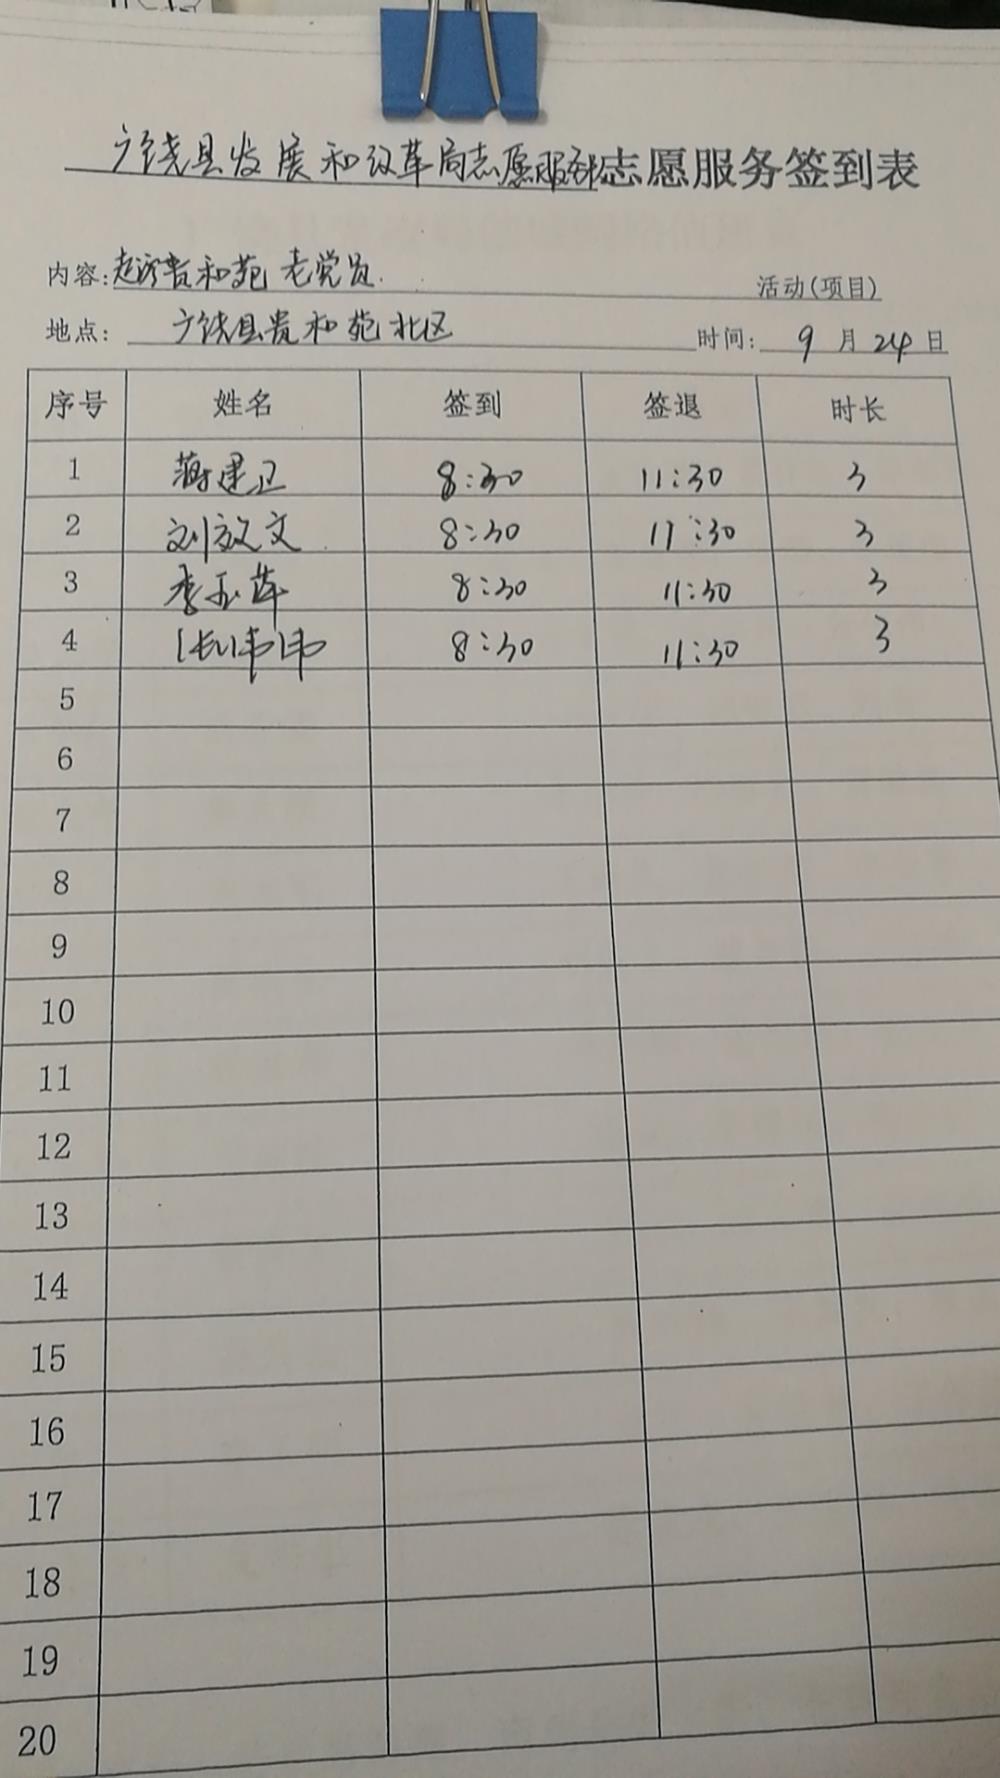 广饶县发展和改革局志愿服务队志愿服务签到表
内容:走访贵和苑老党员 活动(项目)
地点: 广饶县贵和苑北区 时间: 9月24日
序号 姓名 签到 签退 时长
1 蒋建卫 8:30 11:30 3
2 刘放文 8:30 11:30 3
3 李玉萍 8:30 11:30 3
4 8:30 11:30 3
5
6
7
8
9
10
11
12
13
14
15
16
17
18
19
20